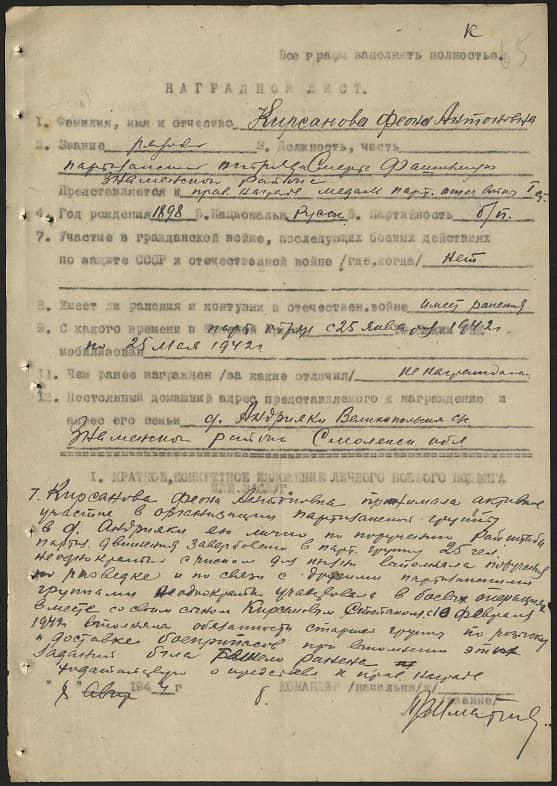 К
Все графы заполнять полностью.
65
НАГРАДНОЙ ЛИСТ.
1. Фамилия, имя и отчество Кирсанова Феона Антоновна
2. Звание рядов. 3. Должность, часть
партизанский отряд "Смерть Фашизму"
Знаменского района
Представляется к прав. награде медаль парт. отеч. войны I ст.
4. Год рождения 1898 5. Национальн. Русск. 6. Партийность б/п.
7. Участие в гражданской войне, последующих боевых действиях
по защите СССР и отечественной войне /где, когда/ нет
8. Имеет ли ранения и контузии в отечествен. войне имеет ранения
9. С какого времени в парт. отряде с 25 января 1942 г.
по 25 мая 1942 г.
мобилизован
11. Чем ранее награжден /за какие отличия/ не награждена
12. Постоянный домашний адрес представляемого к награждению и
адрес его семьи д. Андрияки Великопольский с/с
Знаменский район Смоленск. обл.
I. КРАТКОЕ, КОНКРЕТНОЕ ИЗЛОЖЕНИЕ ЛИЧНОГО БОЕВОГО ПОДВИГА
ИЛИ ЗАСЛУГ
Т. Кирсанова Феона Антоновна принимала активное
участие в организации партизанской группы
в д. Андрияки ею лично по поручению Рай штаба
партиз. движения завербовано в парт. группу 25 чел.
неоднократно с риском для жизни выполняла поручения
по разведке и по связи с другими партизанскими
группами неоднократно участвовала в боевых операциях
вместе со своим сыном Кирсановым Степаном. с 10 февраля
1942 г. выполняла обязанности старшей группы по розыску
и доставке боеприпасов при выполнении этих
заданий была ранена
ходатайствую о представ. к прав. награде
"8" Авг 1944 г.
КОМАНДИР /начальник/
/звание/